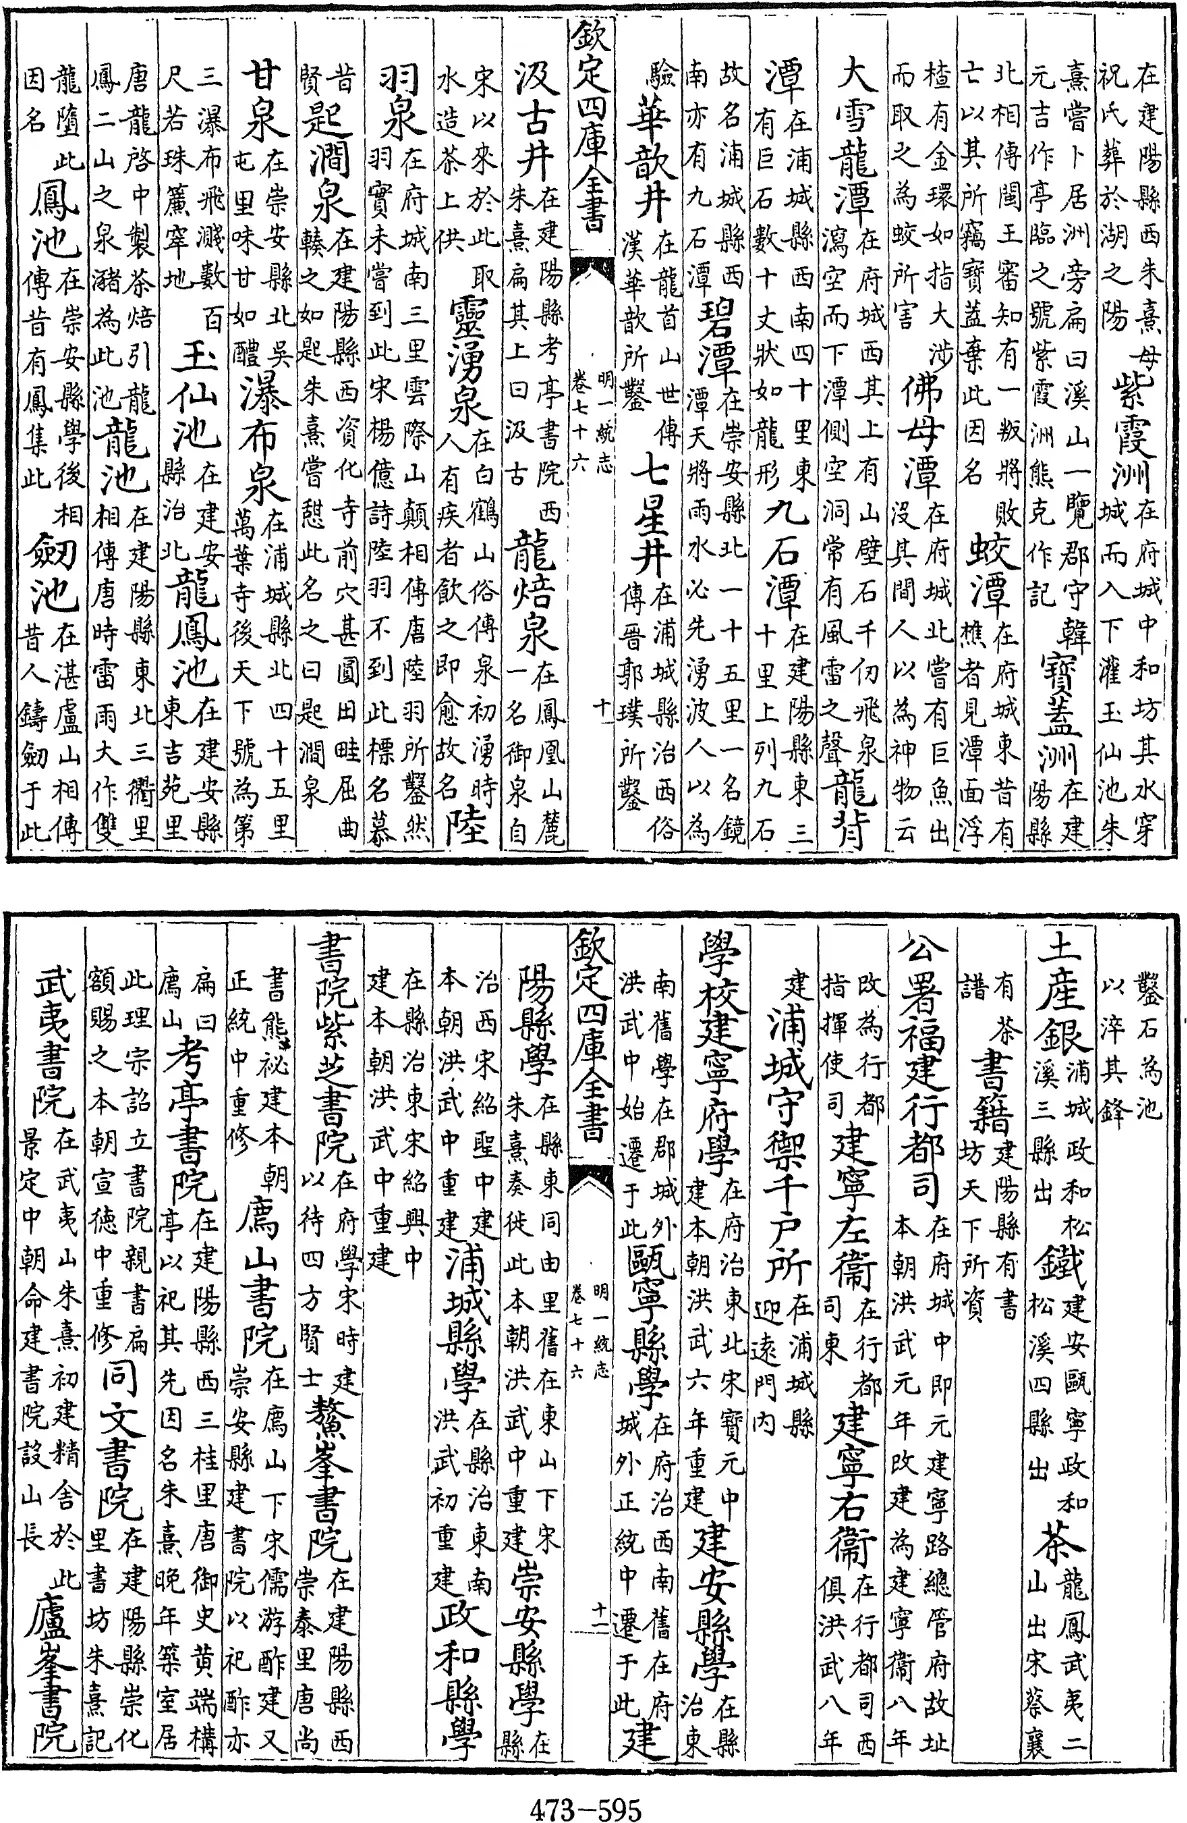 在建陽縣西朱熹母祝氏葬於湖之陽紫霞洲在府城中和坊其水穿城而入下灌玉仙池朱
熹嘗卜居洲旁扁曰溪山一覽郡守韓元吉作亭臨之號紫霞洲熊克作記寶蓋洲在建陽縣
北相傳閩王審知有一叛將敗亡以其所竊寶蓋棄此因名蛟潭在府城東昔有樵者見潭面浮
楂有金環如指大涉而取之為蛟所害佛母潭在府城北嘗有巨魚出沒其間人以為神物云
大雪龍潭在府城西其上有山壁石千仞飛泉瀉空而下潭側空洞常有風雷之聲龍背
潭在浦城縣西南四十里東有巨石數十丈狀如龍形九石潭在建陽縣東三十里上列九石
故名浦城縣西南亦有九石潭碧潭在崇安縣北一十五里一名鏡潭天將雨水必先湧波人以為
驗華歆井在龍首山世傳漢華歆所鑿七星井在浦城縣治西俗傳晉郭璞所鑿
欽定四庫全書 明一統志 卷七十六 十
汲古井在建陽縣考亭書院西朱熹扁其上曰汲古龍焙泉在鳳凰山麓一名御泉自
宋以來於此取水造茶上供靈湧泉在白鶴山俗傳泉初湧時人有疾者飲之即愈故名陸
羽泉在府城南三里雲際山顛相傳唐陸羽所鑿然羽實未嘗到此宋楊億詩陸羽不到此標名慕
昔賢匙澗泉在建陽縣西資化寺前穴甚圓田畦屈曲輳之如匙朱熹嘗憇此名之曰匙澗泉
甘泉在崇安縣北吳屯里味甘如醴瀑布泉在浦城縣北四十五里萬葉寺後天下號為第
三瀑布飛濺數百尺若珠簾窣地玉仙池在建安縣治北龍鳳池在建安縣東吉苑里
唐龍啓中製茶焙引龍鳳二山之泉瀦為此池龍池在建陽縣東北三衢里相傳唐時雷雨大作雙
龍墮此因名鳳池在崇安縣學後相傳昔有鳳集此劒池在湛盧山相傳昔人鑄劒于此
鑿石為池以淬其鋒
土産銀浦城政和松溪三縣出鐵建安甌寧政和松溪四縣出茶龍鳳武夷二山出宋蔡襄
有茶譜書籍建陽縣有書坊天下所資
公署福建行都司在府城中即元建寧路總管府故址本朝洪武元年改建為建寧衞八年
改為行都指揮使司建寧左衞在行都司東建寧右衞在行都司西俱洪武八年
建浦城守禦千戶所在浦城縣迎遠門內
學校建寧府學在府治東北宋寶元中建本朝洪武六年重建建安縣學在縣治東
南舊學在郡城外洪武中始遷于此甌寧縣學在府治西南舊在府城外正統中遷于此建
欽定四庫全書 明一統志 卷七十六 十一
陽縣學在縣東同由里舊在東山下宋朱熹奏徙此本朝洪武中重建崇安縣學在縣
治西宋紹聖中建本朝洪武中重建浦城縣學在縣治東南洪武初重建政和縣學
在縣治東宋紹興中建本朝洪武中重建
書院紫芝書院在府學宋時建以待四方賢士鰲峯書院在建陽縣西崇泰里唐尚
書熊祕建本朝正統中重修廌山書院在廌山下宋儒游酢建又崇安縣建書院以祀酢亦
扁曰廌山考亭書院在建陽縣西三桂里唐御史黄端構亭以祀其先因名朱熹晚年築室居
此理宗詔立書院親書扁額賜之本朝宣德中重修同文書院在建陽縣崇化里書坊朱熹記
武夷書院在武夷山朱熹初建精舍於此景定中朝命建書院設山長廬峯書院
473-595